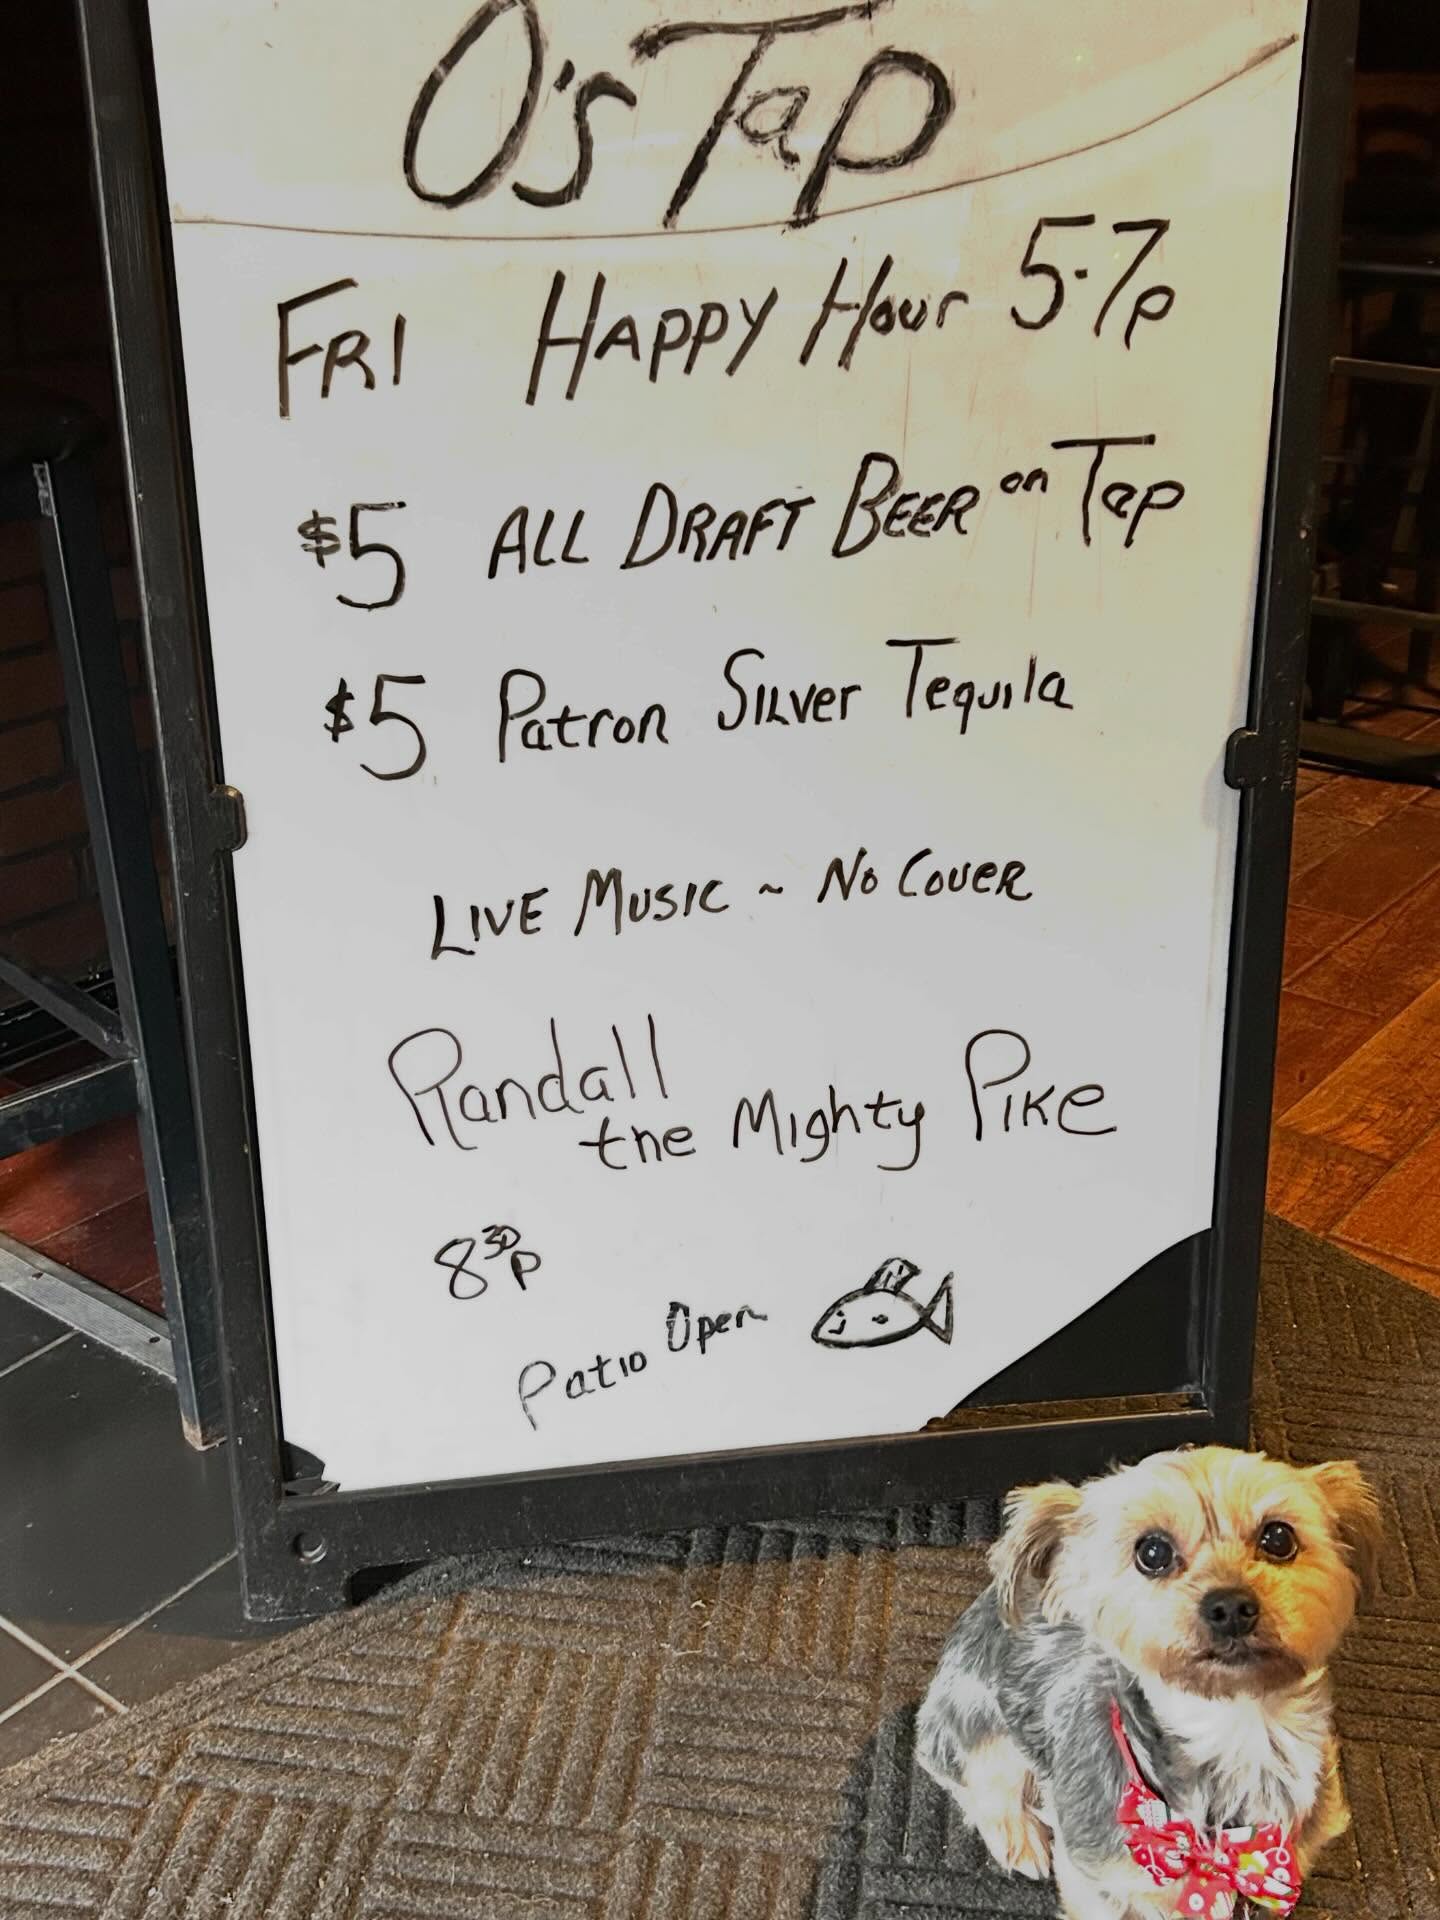 O's Tap
FRI HAPPY Hour 5-7p
$5 ALL DRAFT BEER on Tap
$5 Patron Silver Tequila
LIVE MUSIC ~ No Cover
Randall
the Mighty Pike
8 30 p
Patio Open